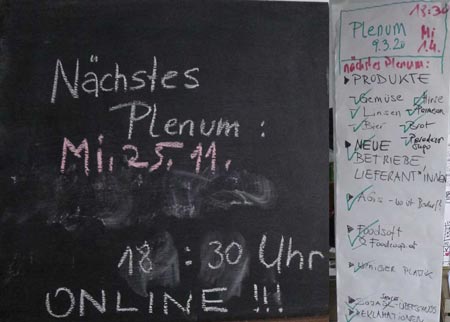 Nächstes
Plenum:
Mi. 25. 11.
18 : 30 Uhr
ONLINE !!!
18:30
Plenum
9.3.20
Mi
1.4.
nächstes Plenum:
PRODUKTE
Gemüse
Linsen
Bier
Brot
NEUE
BETRIEBE
LIEFERANT*INNEN
Foodsoft
& Foodcoops.at
WENIGER PLASTIK
REKLAMATIONEN